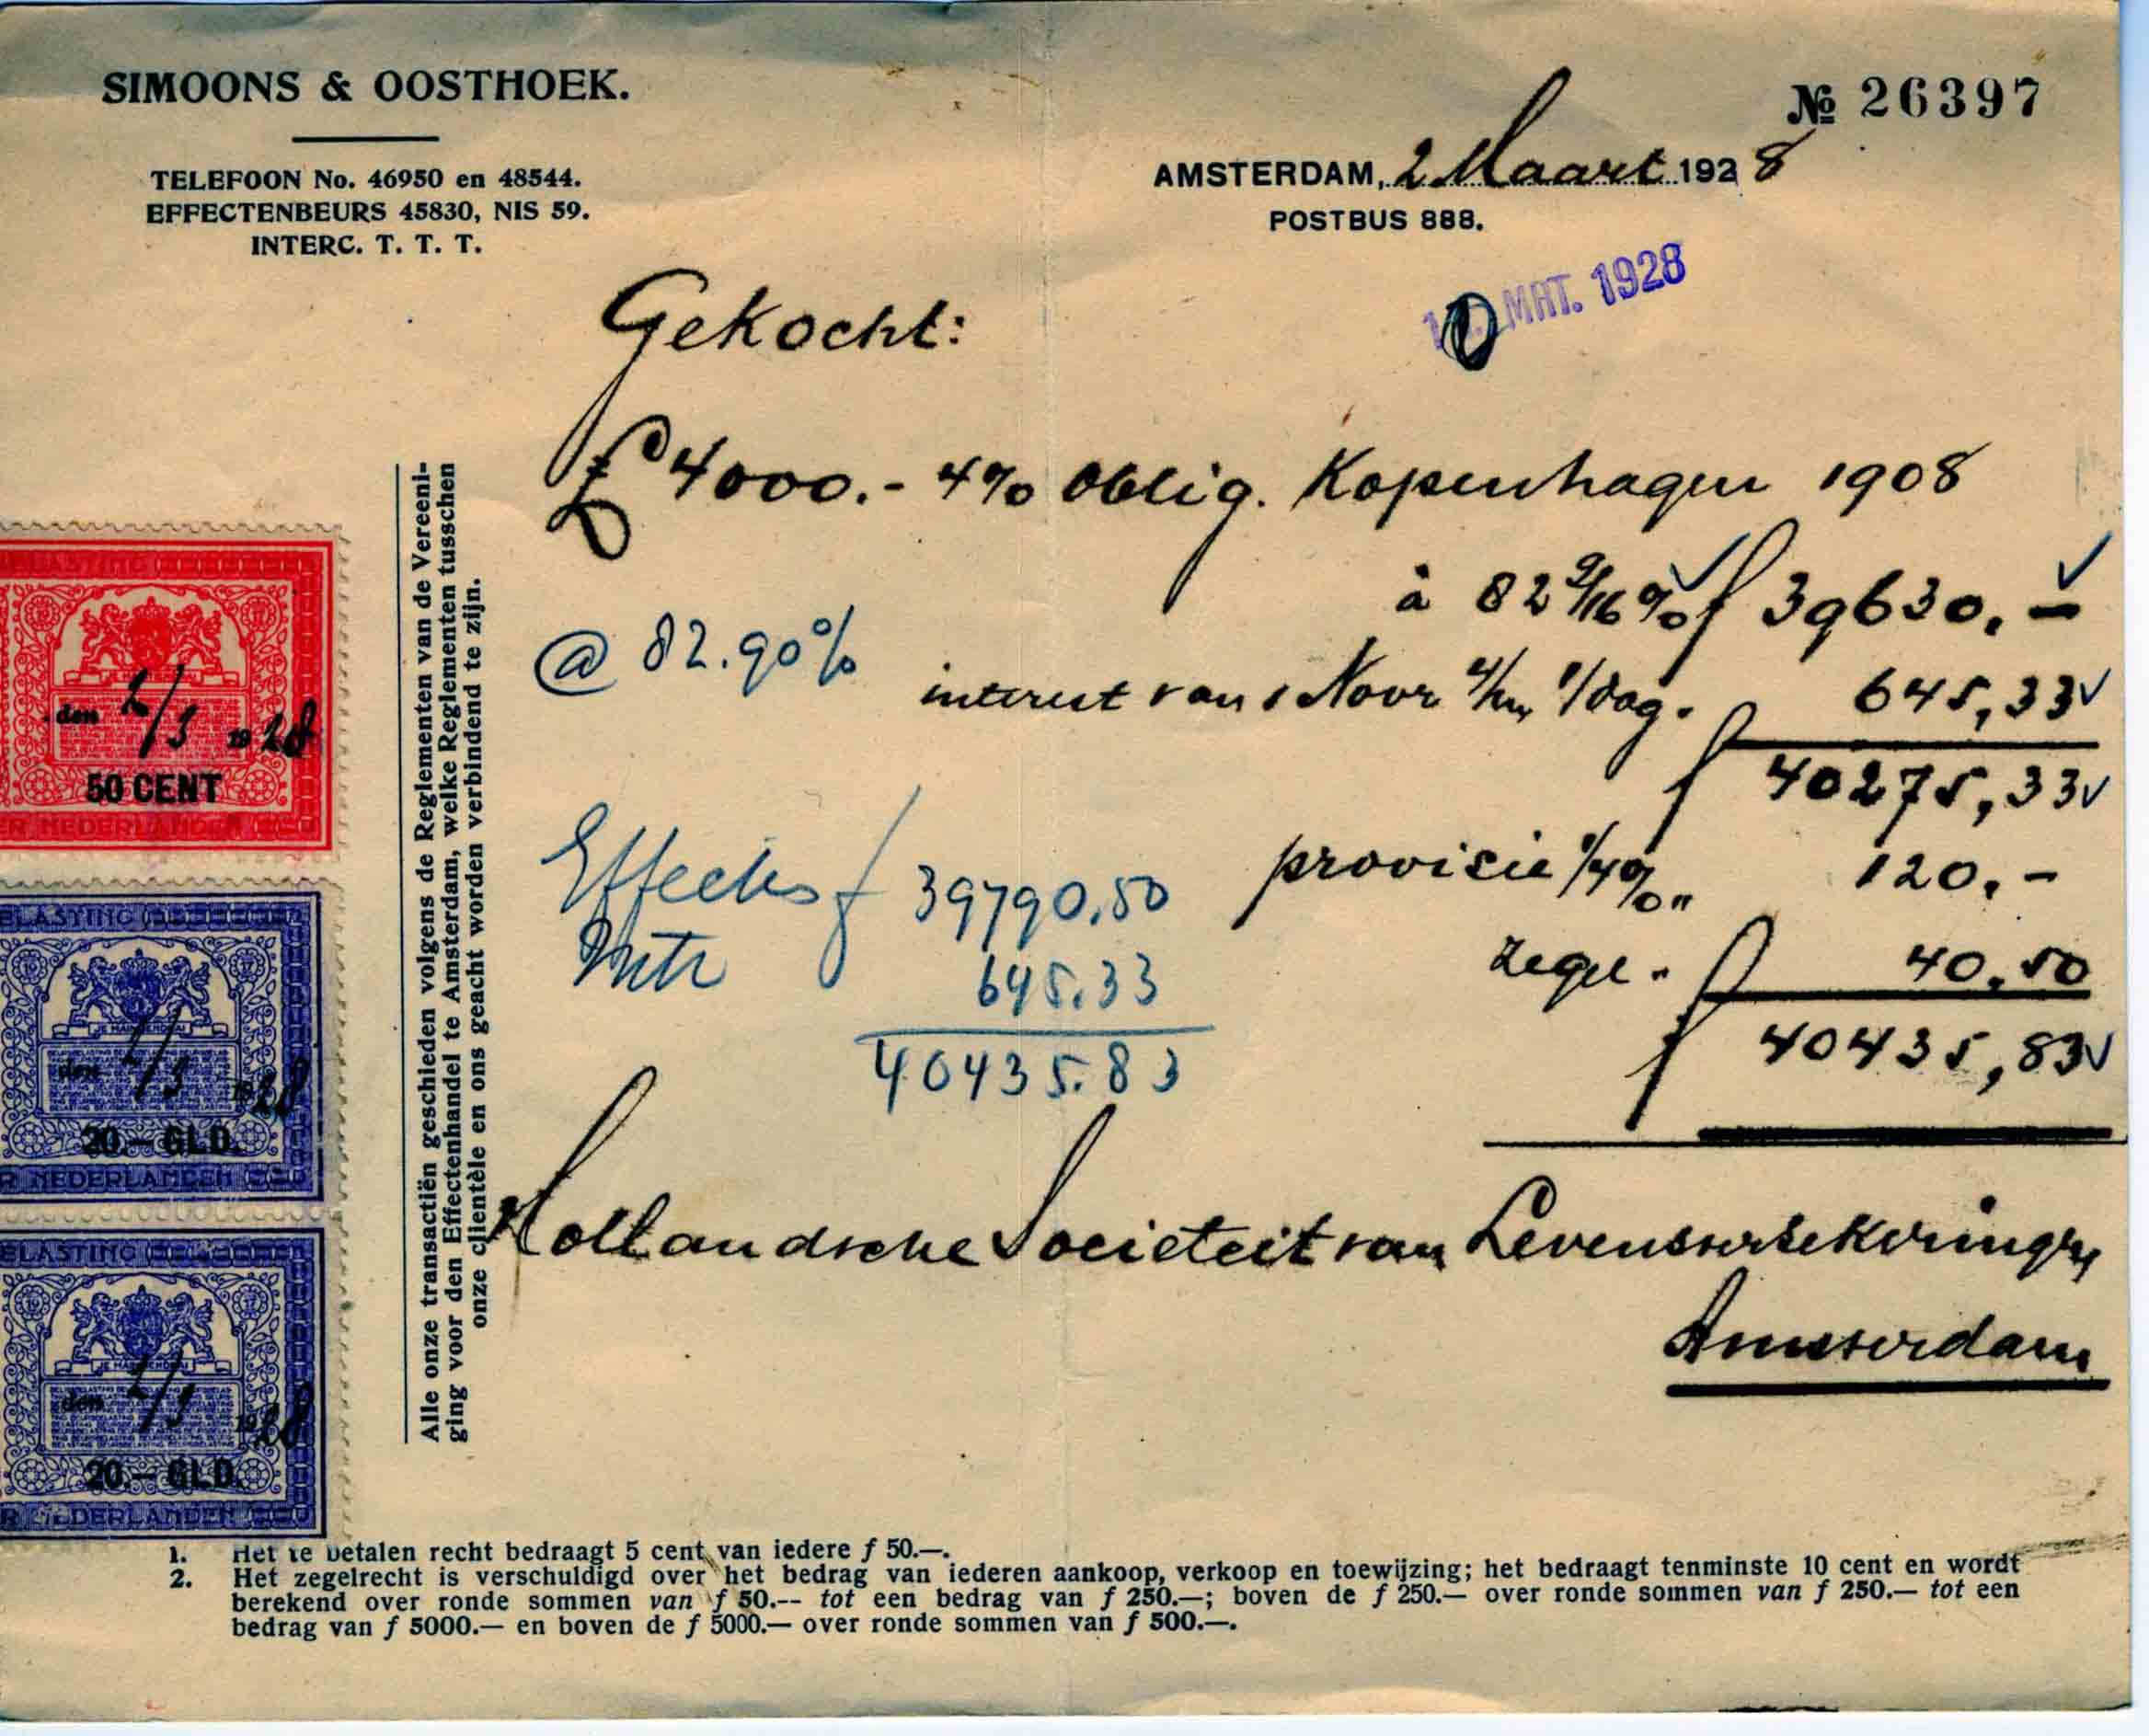 SIMOONS & OOSTHOEK.
TELEFOON No. 46950 en 48544.
EFFECTENBEURS 45830, NIS 59.
INTERC. T. T. T.
№ 26397
AMSTERDAM, 2 Maart 1928
POSTBUS 888.
MRT. 1928
Gekocht:
£ 4000.- 4% Oblig. Kopenhagen 1908
à 82 9/16 % f 39630,-
@ 82.90%
interest van 1 Novr 4/m 1/dag. 645,33
f 40275,33
Effecten f 39790,50
provisie 1/4% " 120,-
Intr 645.33
zegel " 40,50
40435.83
f 40435,83
Hollandsche Societeit van Levensverzekeringen
Amsterdam
Alle onze transactiën geschieden volgens de Reglementen van de Vereeni-
ging voor den Effectenhandel te Amsterdam, welke Reglementen tusschen
onze clientèle en ons geacht worden verbindend te zijn.
BELASTING
den 2/3 1928
50 CENT
DER NEDERLANDEN
BELASTING
JE MAINTIENDRAI
den 2/3 1928
20.— GLD.
DER NEDERLANDEN
BELASTING
JE MAINTIENDRAI
den 2/3 1928
20.— GLD.
DER NEDERLANDEN
1. Het te betalen recht bedraagt 5 cent van iedere f 50.—.
2. Het zegelrecht is verschuldigd over het bedrag van iederen aankoop, verkoop en toewijzing; het bedraagt tenminste 10 cent en wordt
berekend over ronde sommen van f 50.-- tot een bedrag van f 250.—; boven de f 250.— over ronde sommen van f 250.— tot een
bedrag van f 5000.— en boven de f 5000.— over ronde sommen van f 500.—.